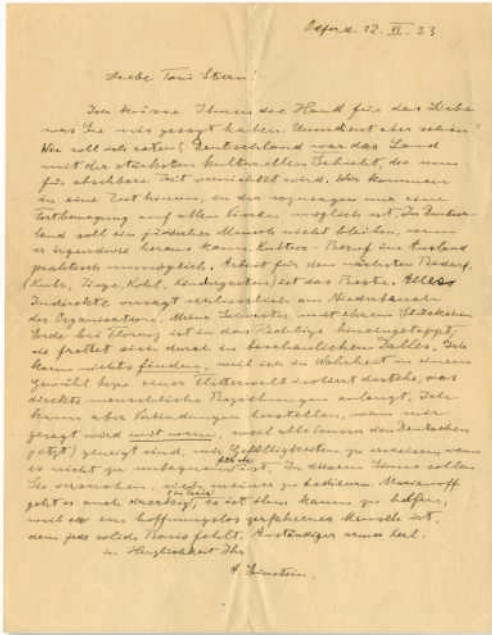 Oxford. 12. VI. 33
Liebe Toni Stern!
Ich küsse Ihnen die Hand für das Liebe
was Sie mir gesagt haben. Unverdient aber schön!
Wie soll ich raten? Deutschland war das Land
mit der stärksten kulturellen Schicht, die nun
für absehbare Zeit vernichtet wird. Wir kommen
in eine Zeit hinein, in der sozusagen nur eine
Fortbewegung auf allen Vieren möglich ist. In Deutsch-
land soll ein jüdischer Mensch nicht bleiben, wenn
er irgendwie heraus kann. Kultur-Beruf im Ausland
praktisch unmöglich. Arbeit für den nächsten Bedarf,
(Kuh, Ziege, Kohl, Kindergarten) ist das Beste. Alles
Indirekte versagt
der Organisation. Meine Schwester mit ihrem Stückchen
Erde bei Florenz ist in das Richtige hineingetappt,
sie frettet sich durch in beschaulichem Dalles. Ich
kann nichts finden, weil ich in Wahrheit in einem
Gewühl einer Flitterwelt isoliert dastehe, was
direkte menschliche Beziehungen anlangt. Ich
kann aber Verbindungen herstellen, wenn mir
gesagt wird mit wem, weil alle (ausser den Deutschen
jetzt) geneigt sind, mir Gefälligkeiten zu erweisen, wenn
es nicht zu unbequem ist. In diesem Sinne sollen
Sie versuchen, sich meiner zu bedienen. Marianoff
geht es auch dreckig; es ist ihm kaum zu helfen,
weil er ein hoffnungslos zerfahrener Mensch ist,
dem jede solide Basis fehlt. Anständiger armer Kerl.
in Herzlichkeit Ihr
A. Einstein.